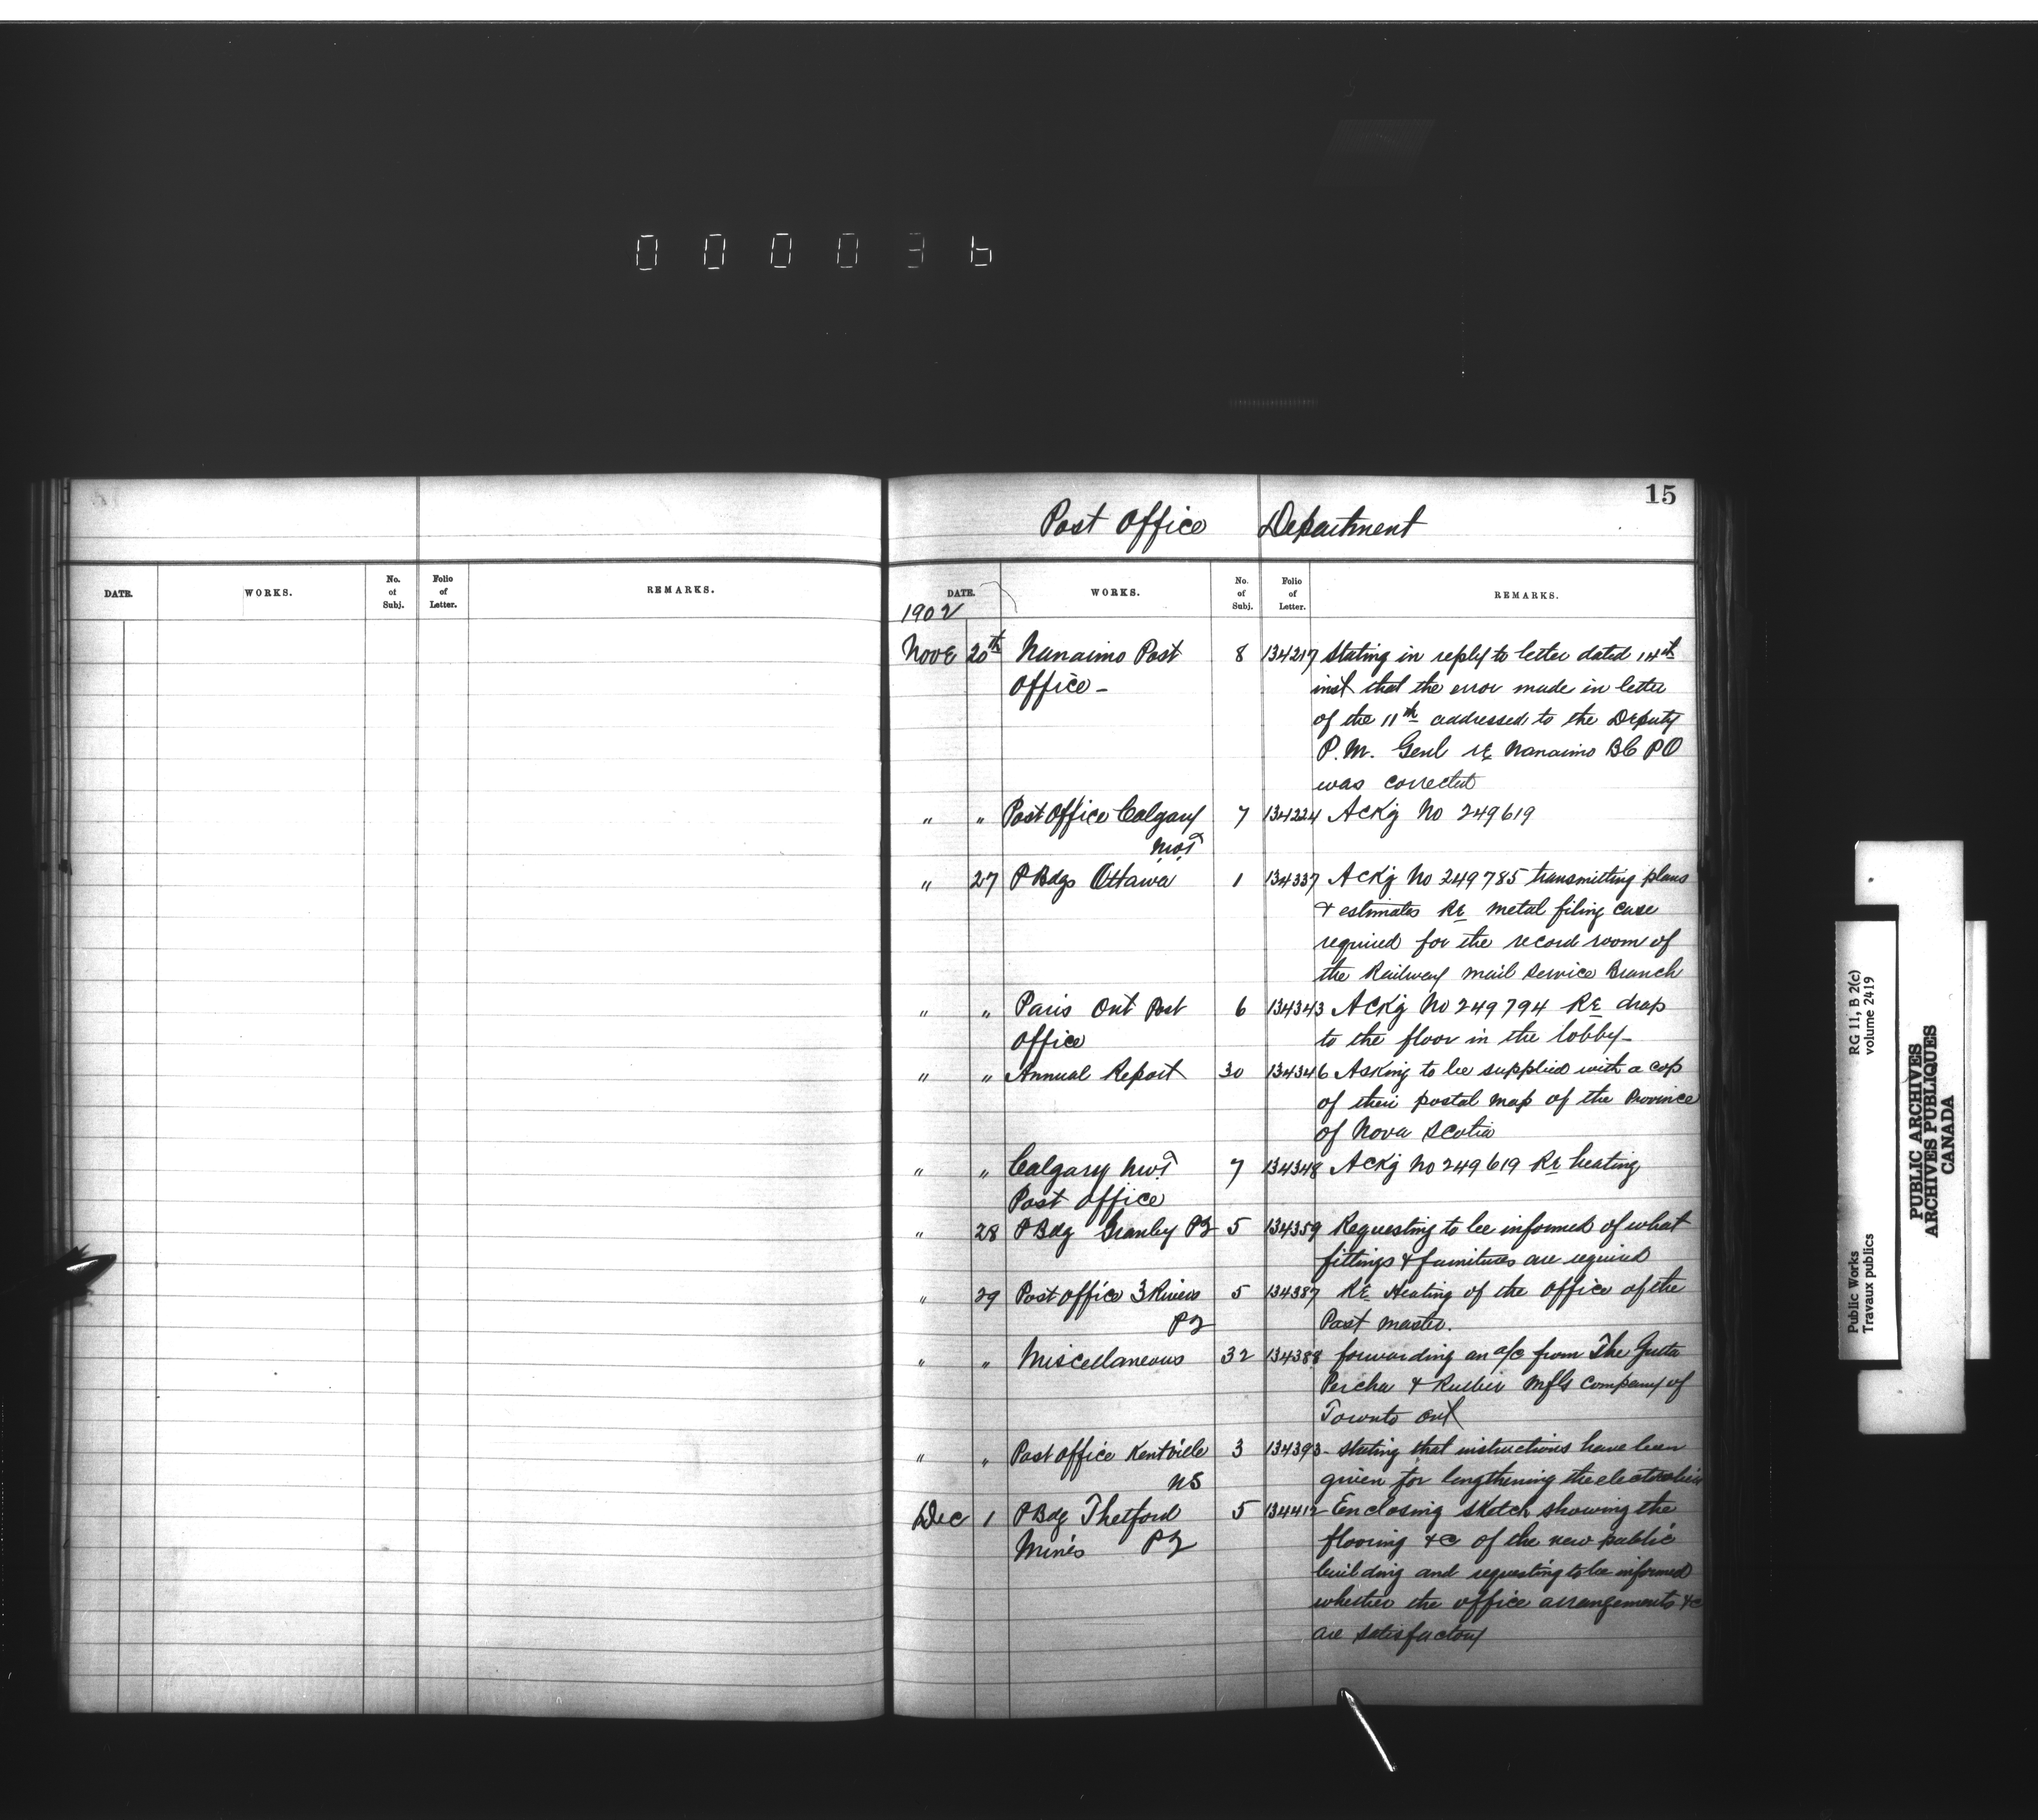 000036
15
Post Office Department
DATE. WORKS. No. of Subj. Folio of Letter. REMARKS.
DATE. WORKS. No. of Subj. Folio of Letter. REMARKS.
1902
Nove 20th Nanaimo Post 8 134217 Stating in reply to letter dated 14th
Office - inst that the error made in letter
of the 11th addressed to the Deputy
P.M. Genl re Nanaimo BC PO
was corrected
" " Post Office Calgary 7 134224 Ackg No 249619
NWT
" 27 P Bdgs Ottawa 1 134337 Ackg No 249785 transmitting plans
& estimates Re metal filing case
required for the record room of
the Railway Mail Service Branch
" " Paris Ont Post 6 134343 Ackg No 249794 Re drop
Office to the floor in the lobby-
" " Annual Report 30 134346 Asking to be supplied with a cop
of their postal map of the Province
of Nova Scotia
" " Calgary NWT 7 134348 Ackg No 249619 Re heating
Post Office
" 28 P Bdg Granby PQ 5 134359 Requesting to be informed of what
fittings & furnitures are required
" 29 Post Office 3 Rivers 5 134387 Re Heating of the Office of the
PQ Post Master.
" " Miscellaneous 32 134388 forwarding an a/c from The Gutta
Percha & Rubber Mfg Company of
Toronto Ont
" " Post Office Kentville 3 134393 - Stating that instructions have been
NS given for lengthening the electrolier
Dec 1 P Bdg Thetford 5 134412 - Enclosing sketch showing the
Mines PQ flooring &c of the new public
building and requesting to be informed
whether the office arrangements &c
are satisfactory
RG 11, B 2(c)
volume 2419
Public Works
Travaux publics
PUBLIC ARCHIVES
ARCHIVES PUBLIQUES
CANADA